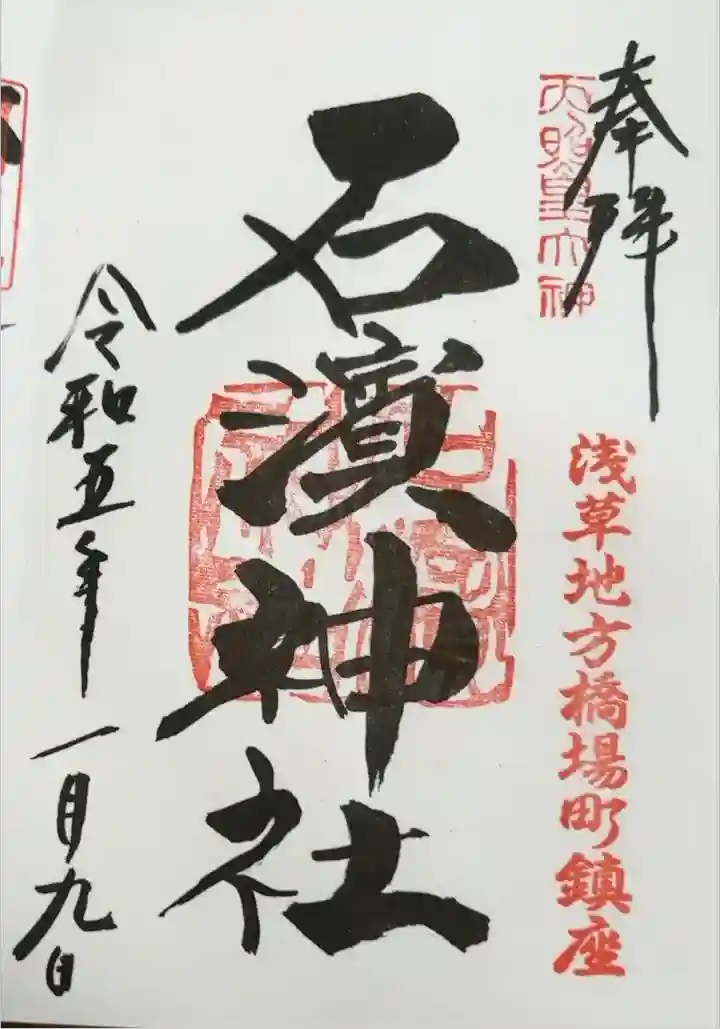 奉拝
天照皇大神
浅草地方橋場町鎮座
石濱神社
令和五年一月九日